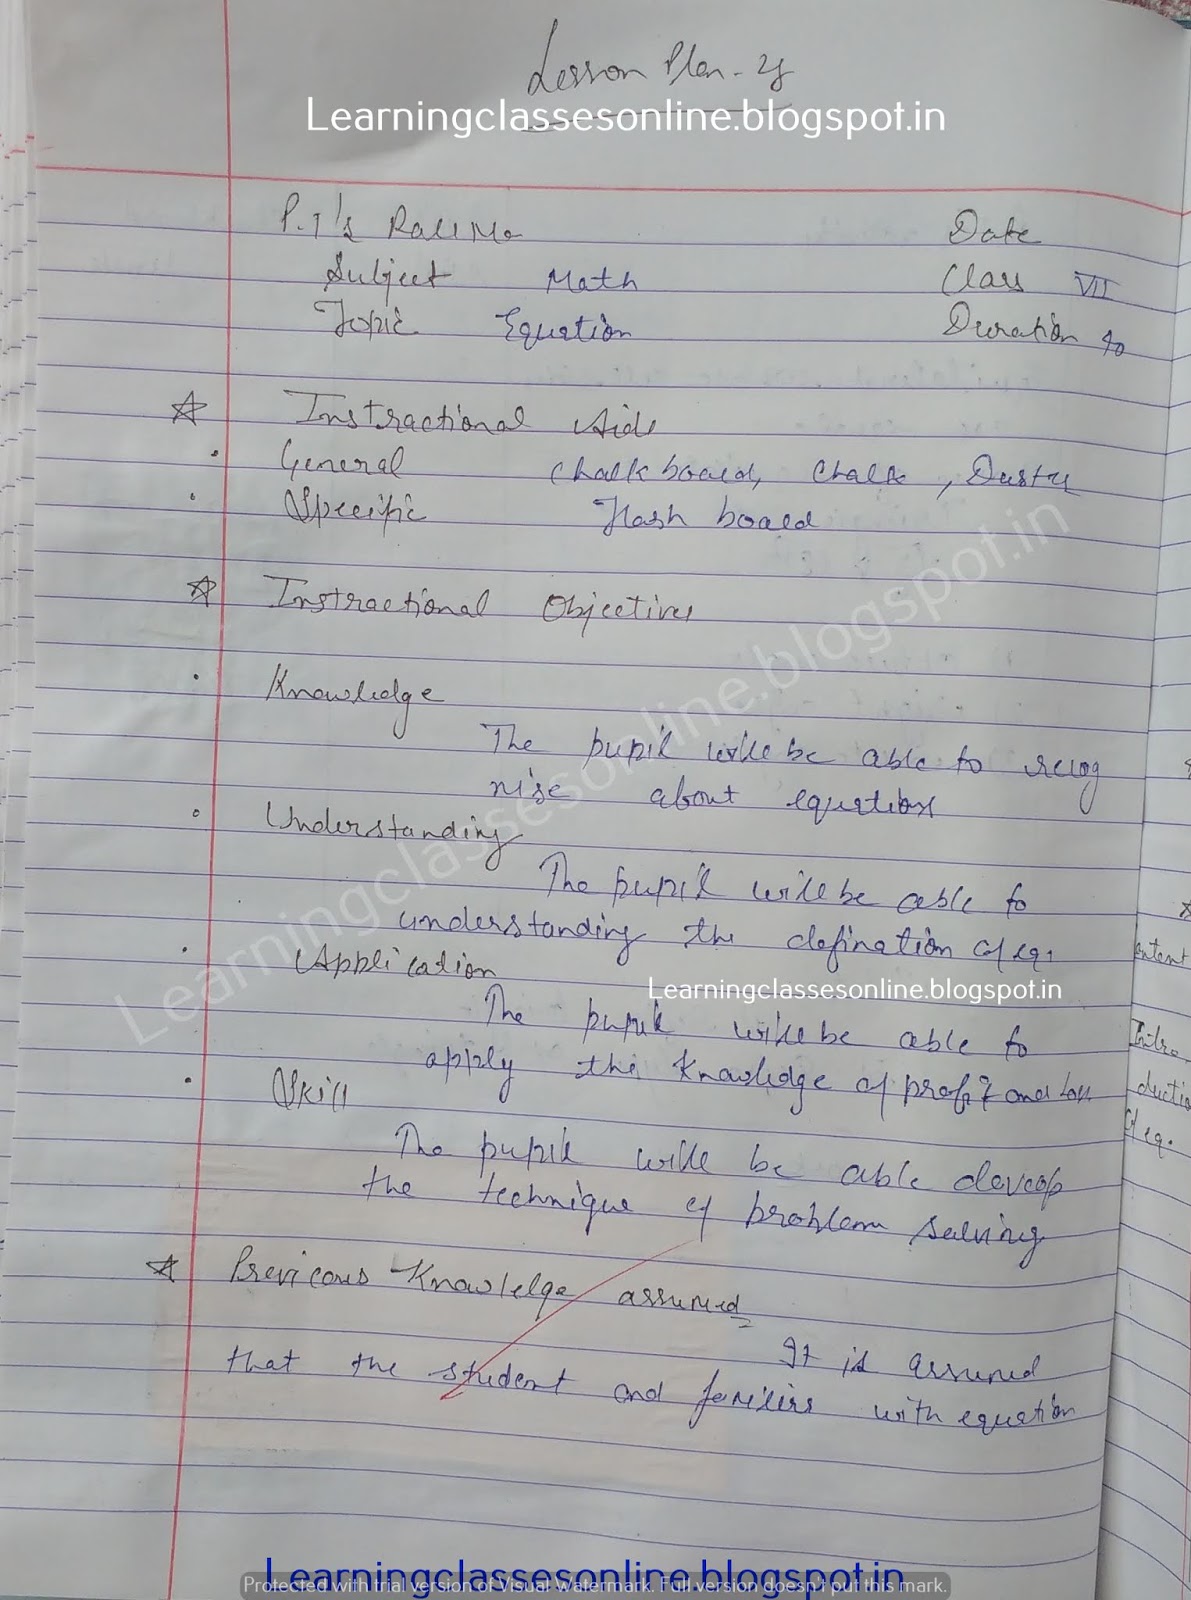 Lesson Plan - 2
Learningclassesonline.blogspot.in
P.T's Roll No Date
Subject Math Class VII
Topic Equation Duration
Instractional Aids
General Chalkboard, Chalk, Duster
Specific Flash board
Instractional Objectives
Knowledge
The pupil will be able to recog
nise about equation
Understanding
The pupil will be able to
understanding the defination of eq.
Application
Learningclassesonline.blogspot.in
The pupil will be able to
apply the knowledge of profit and loss
Skill
The pupil will be able develop
the technique of problem solving
Previous Knowlelge assumed
It is assumed
that the student and familiar with equation
Learningclassesonline.blogspot.in
Learningclassesonline.blogspot.in
Protected with trial version of Visual Watermark. Full version doesn't put this mark.
ontent
Intro
ductio
of eq.